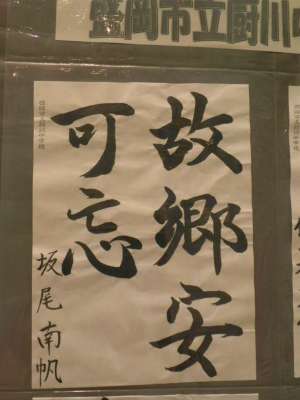 盛岡市立厨川中
故郷安
可忘
坂尾南帆